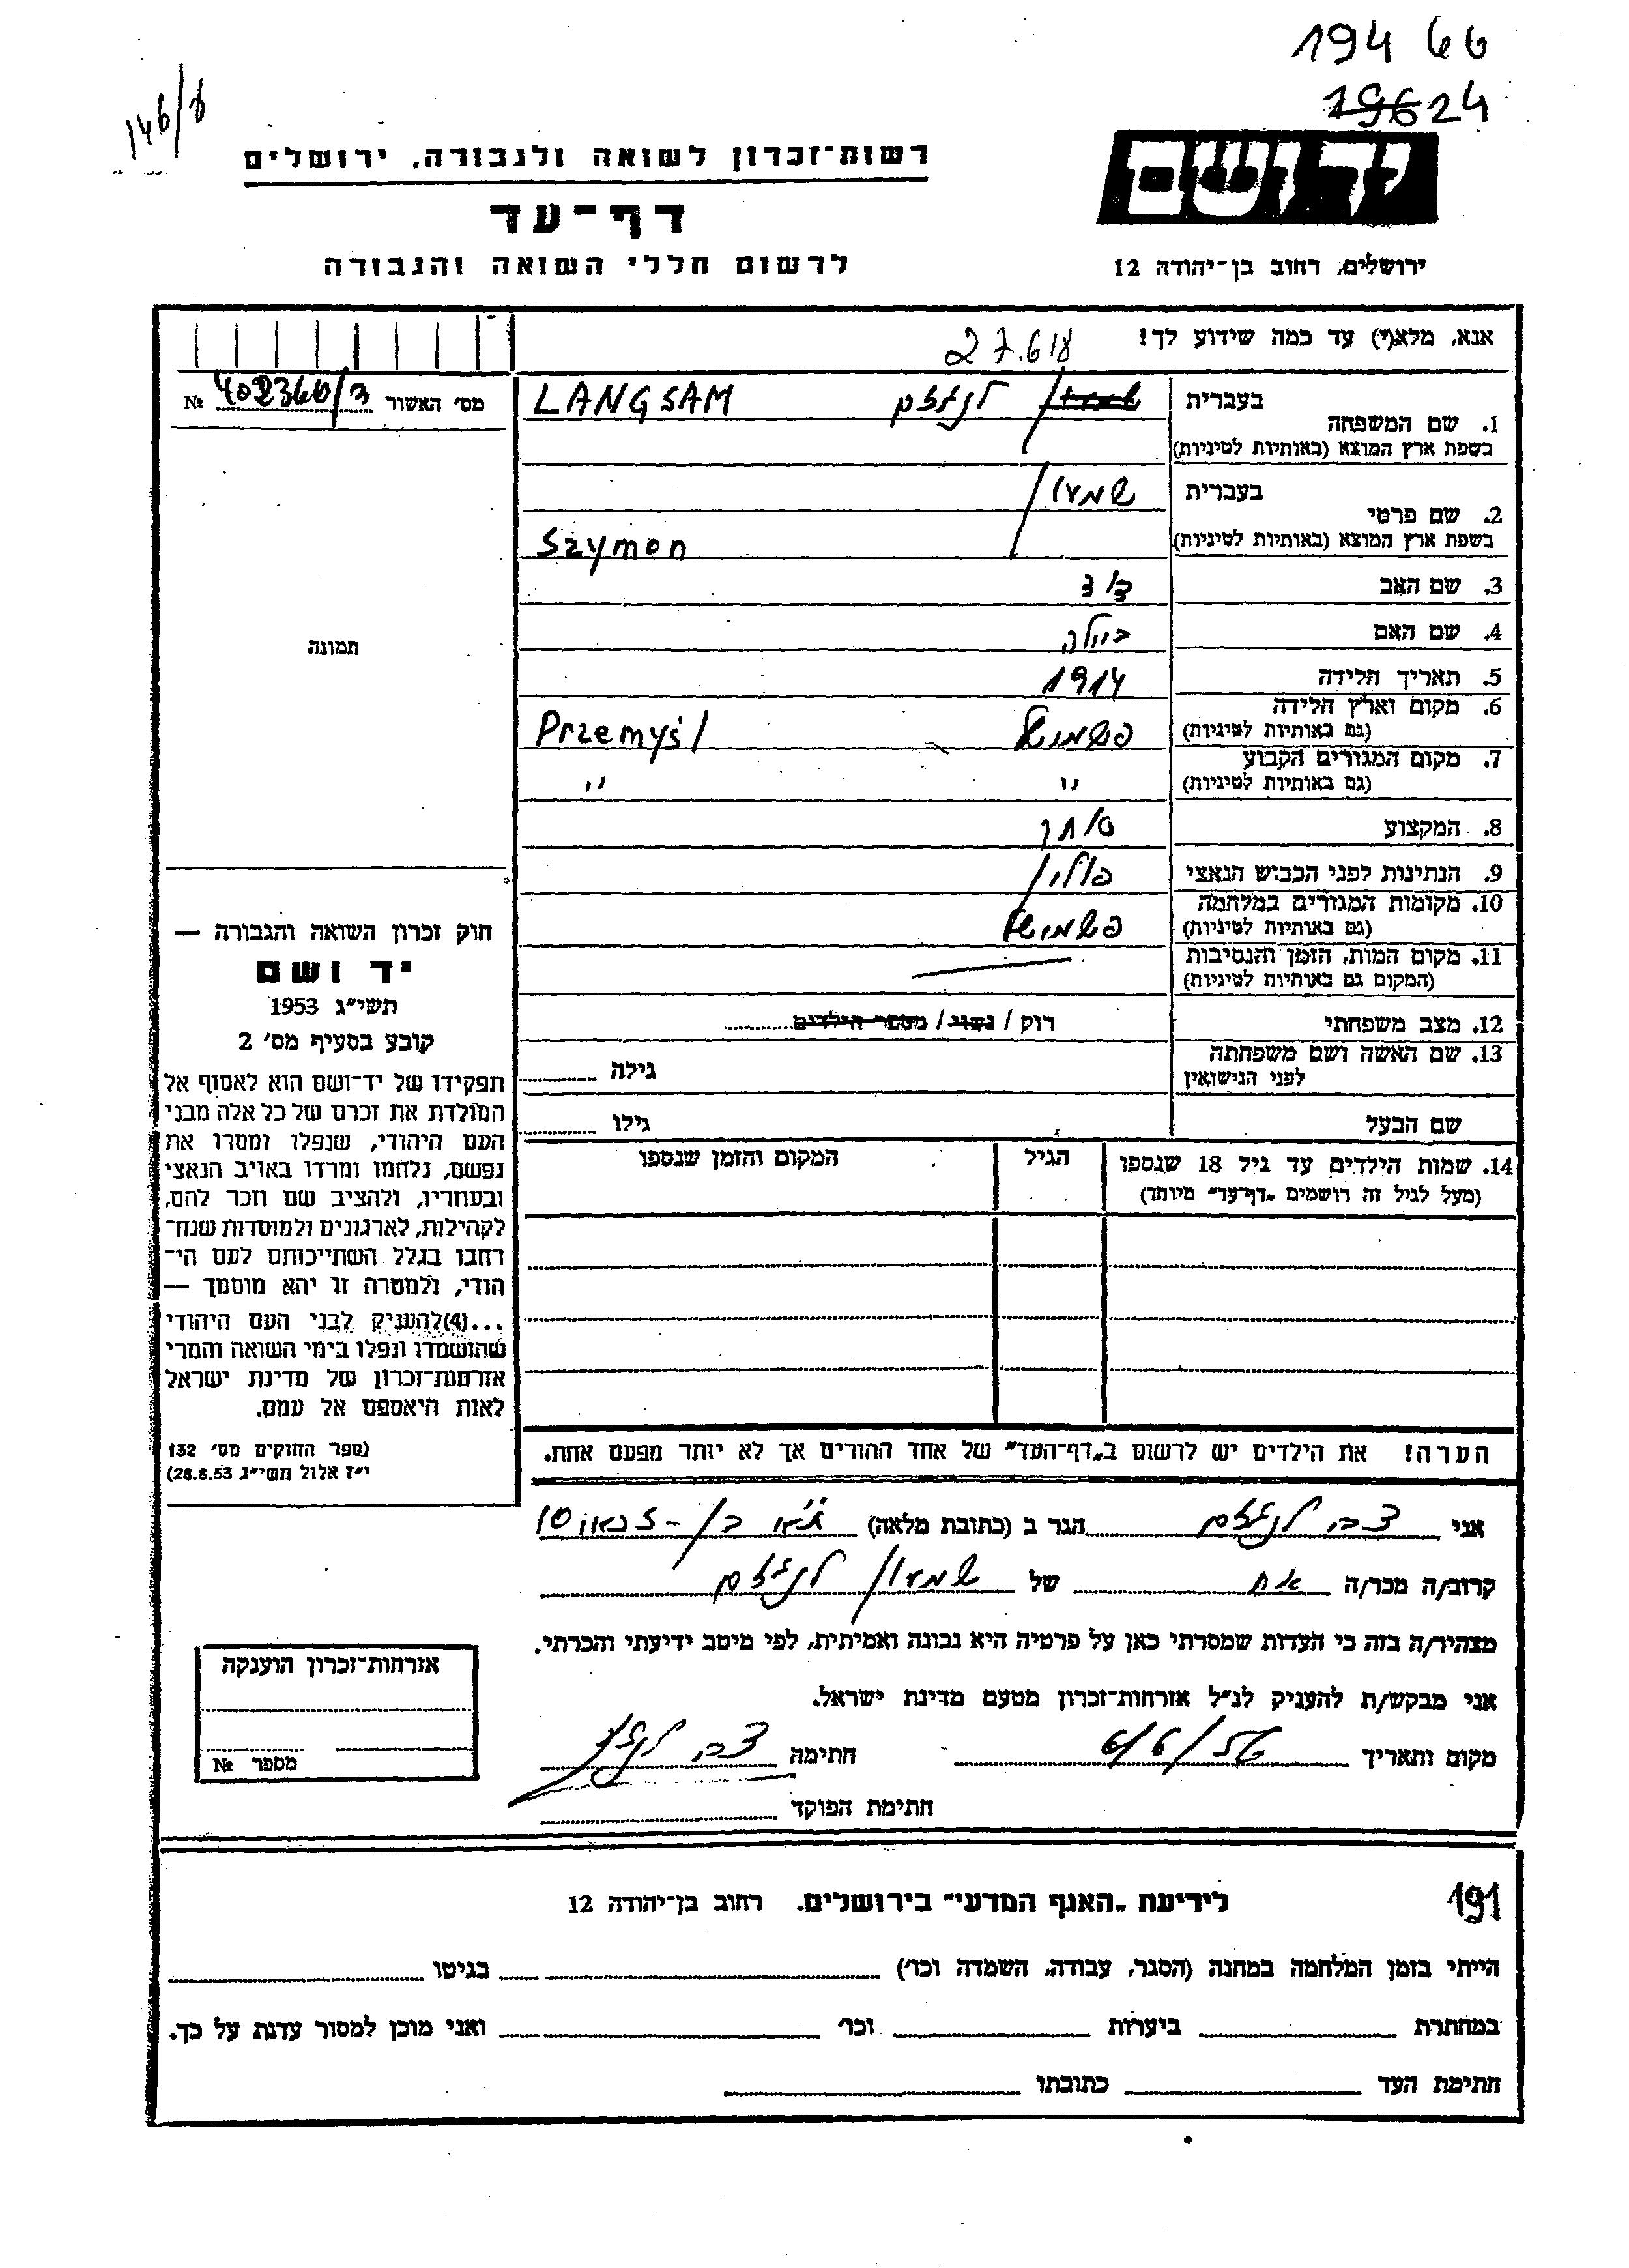 194 66
19624
146/8
רשות־זכרון לשואה ולגבורה, ירושלים
יד ושם
דף־עד
לרשום חללי השואה והגבורה
ירושלים, רחוב בן־יהודה 12
אנא, מלא(י) עד כמה שידוע לך!
27.618
מס׳ האשור № 402360/ד
1. שם המשפחה
בעברית לנגזם LANGSAM
בשפת ארץ המוצא (באותיות לטיניות)
בעברית שמעון
2. שם פרטי
בשפת ארץ המוצא (באותיות לטיניות) Szymon
3. שם האב דוד
4. שם האם ביילה
5. תאריך הלידה 1914
6. מקום וארץ הלידה
(גם באותיות לטיניות) פשמישל Przemyśl
7. מקום המגורים הקבוע
(גם באותיות לטיניות) " "
8. המקצוע סוחר
9. הנתינות לפני הכבוש הנאצי פולין
10. מקומות המגורים במלחמה
(גם באותיות לטיניות) פשמישל
11. מקום המות, הזמן והנסיבות
(המקום גם באותיות לטיניות)
12. מצב משפחתי רוק / נשוי / מספר הילדים
13. שם האשה ושם משפחתה
לפני הנישואין גילה
שם הבעל גילו
14. שמות הילדים עד גיל 18 שנספו הגיל המקום והזמן שנספו
(מעל לגיל זה רושמים „דף־עד״ מיוחד)
הערה! את הילדים יש לרשום ב„דף־העד״ של אחד ההורים אך לא יותר מפעם אחת.
תמונה
חוק זכרון השואה והגבורה —
יד ושם
תשי״ג 1953
קובע בסעיף מס׳ 2
תפקידו של יד־ושם הוא לאסוף אל
המולדת את זכרם של כל אלה מבני
העם היהודי, שנפלו ומסרו את
נפשם, נלחמו ומרדו באויב הנאצי
ובעוזריו, ולהציב שם וזכר להם,
לקהילות, לארגונים ולמוסדות שנח־
רחבו בגלל השתייכותם לעם הי־
הודי, ולמטרה זו יהא מוסמך —
...(4)להעניק לבני העם היהודי
שהושמדו ונפלו בימי השואה והמרי
אזרחות־זכרון של מדינת ישראל
לאות היאספם אל עמם.
(ספר החוקים מס׳ 132
י״ז אלול תשי״ג 28.8.53)
אני צבי לנגזם הגר ב (כתובת מלאה)
קרוב/ה מכר/ה אח של שמעון לנגזם
מצהיר/ה בזה כי העדות שמסרתי כאן על פרטיה היא נכונה ואמיתית, לפי מיטב ידיעתי והכרתי.
אני מבקש/ת להעניק לנ״ל אזרחות־זכרון מטעם מדינת ישראל.
מקום ותאריך 6/6/56 חתימה צבי
חתימת הפוקד
אזרחות־זכרון הוענקה
מספר №
191
לידיעת „האגף המדעי״ בירושלים. רחוב בן־יהודה 12
הייתי בזמן המלחמה במחנה (הסגר, עבודה, השמדה וכו׳) בגיטו
במחתרת ביערות וכו׳ ואני מוכן למסור עדות על כך.
חתימת העד כתובתו